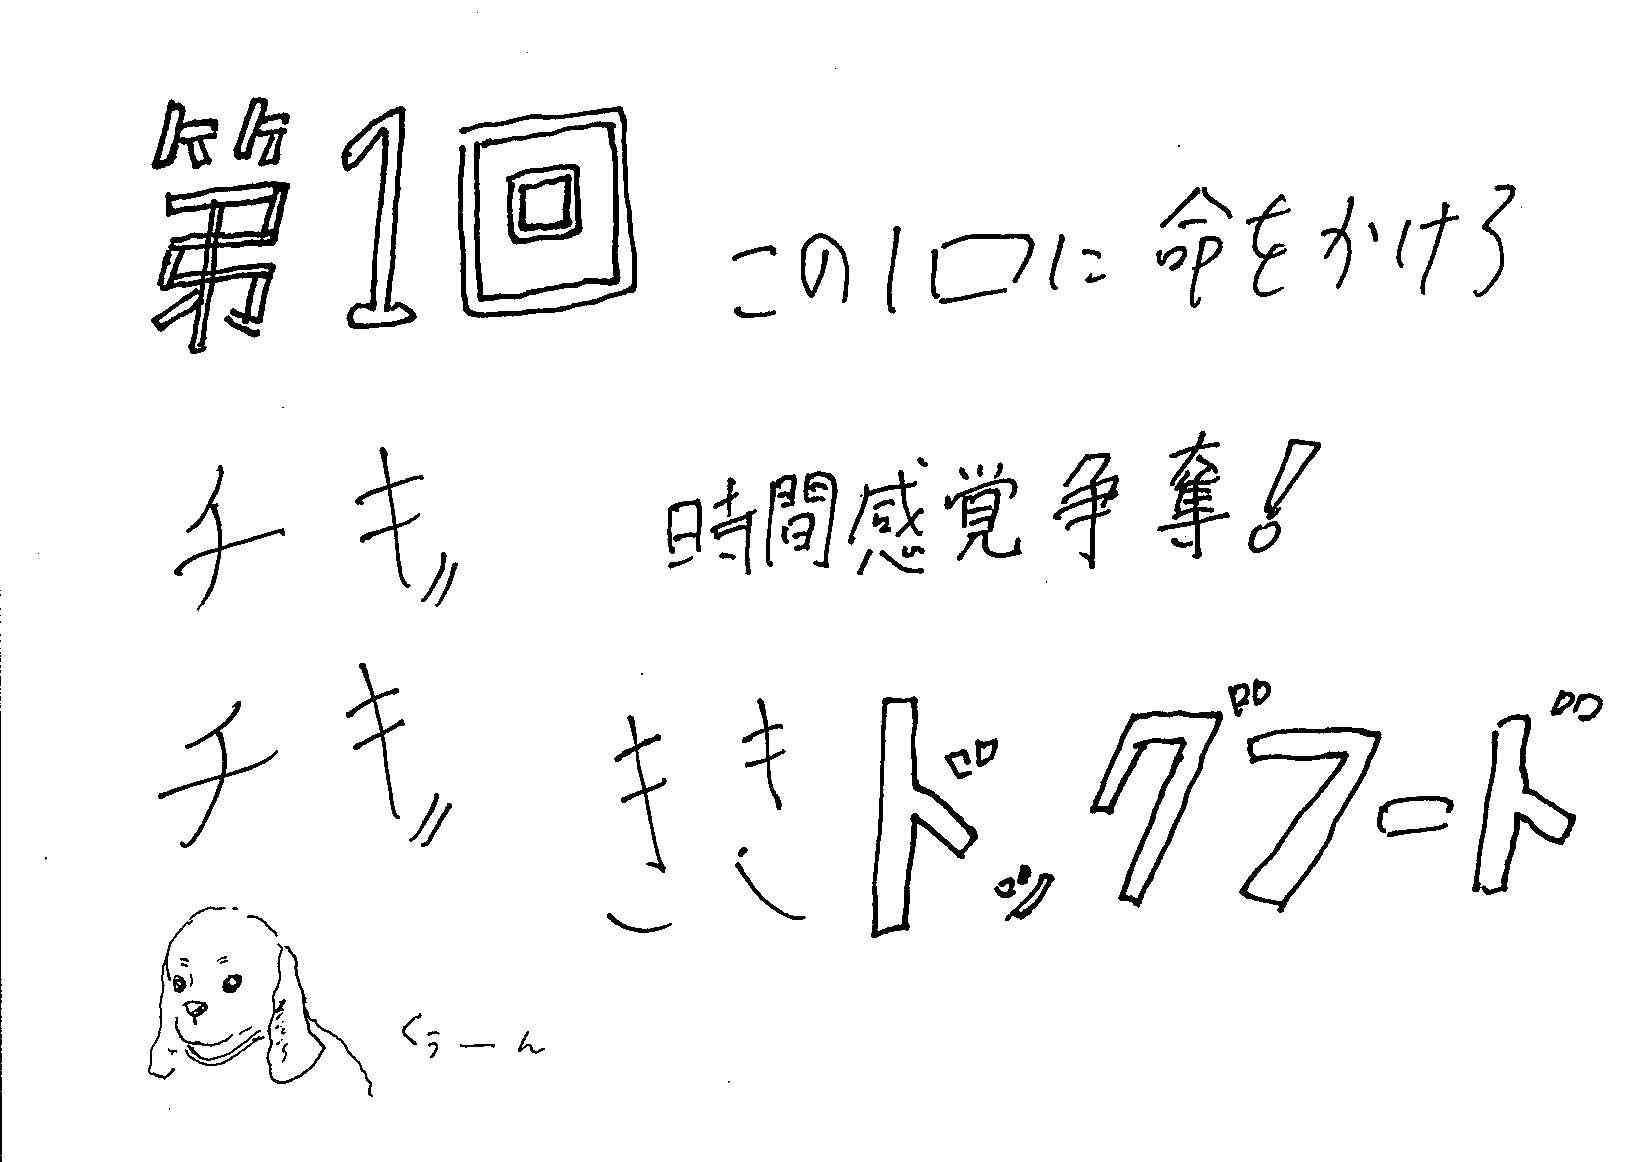 第1回 この1口に命をかけろ
チキ〃 時間感覚争奪！
チキ〃 ききドッグフード
くぅーん